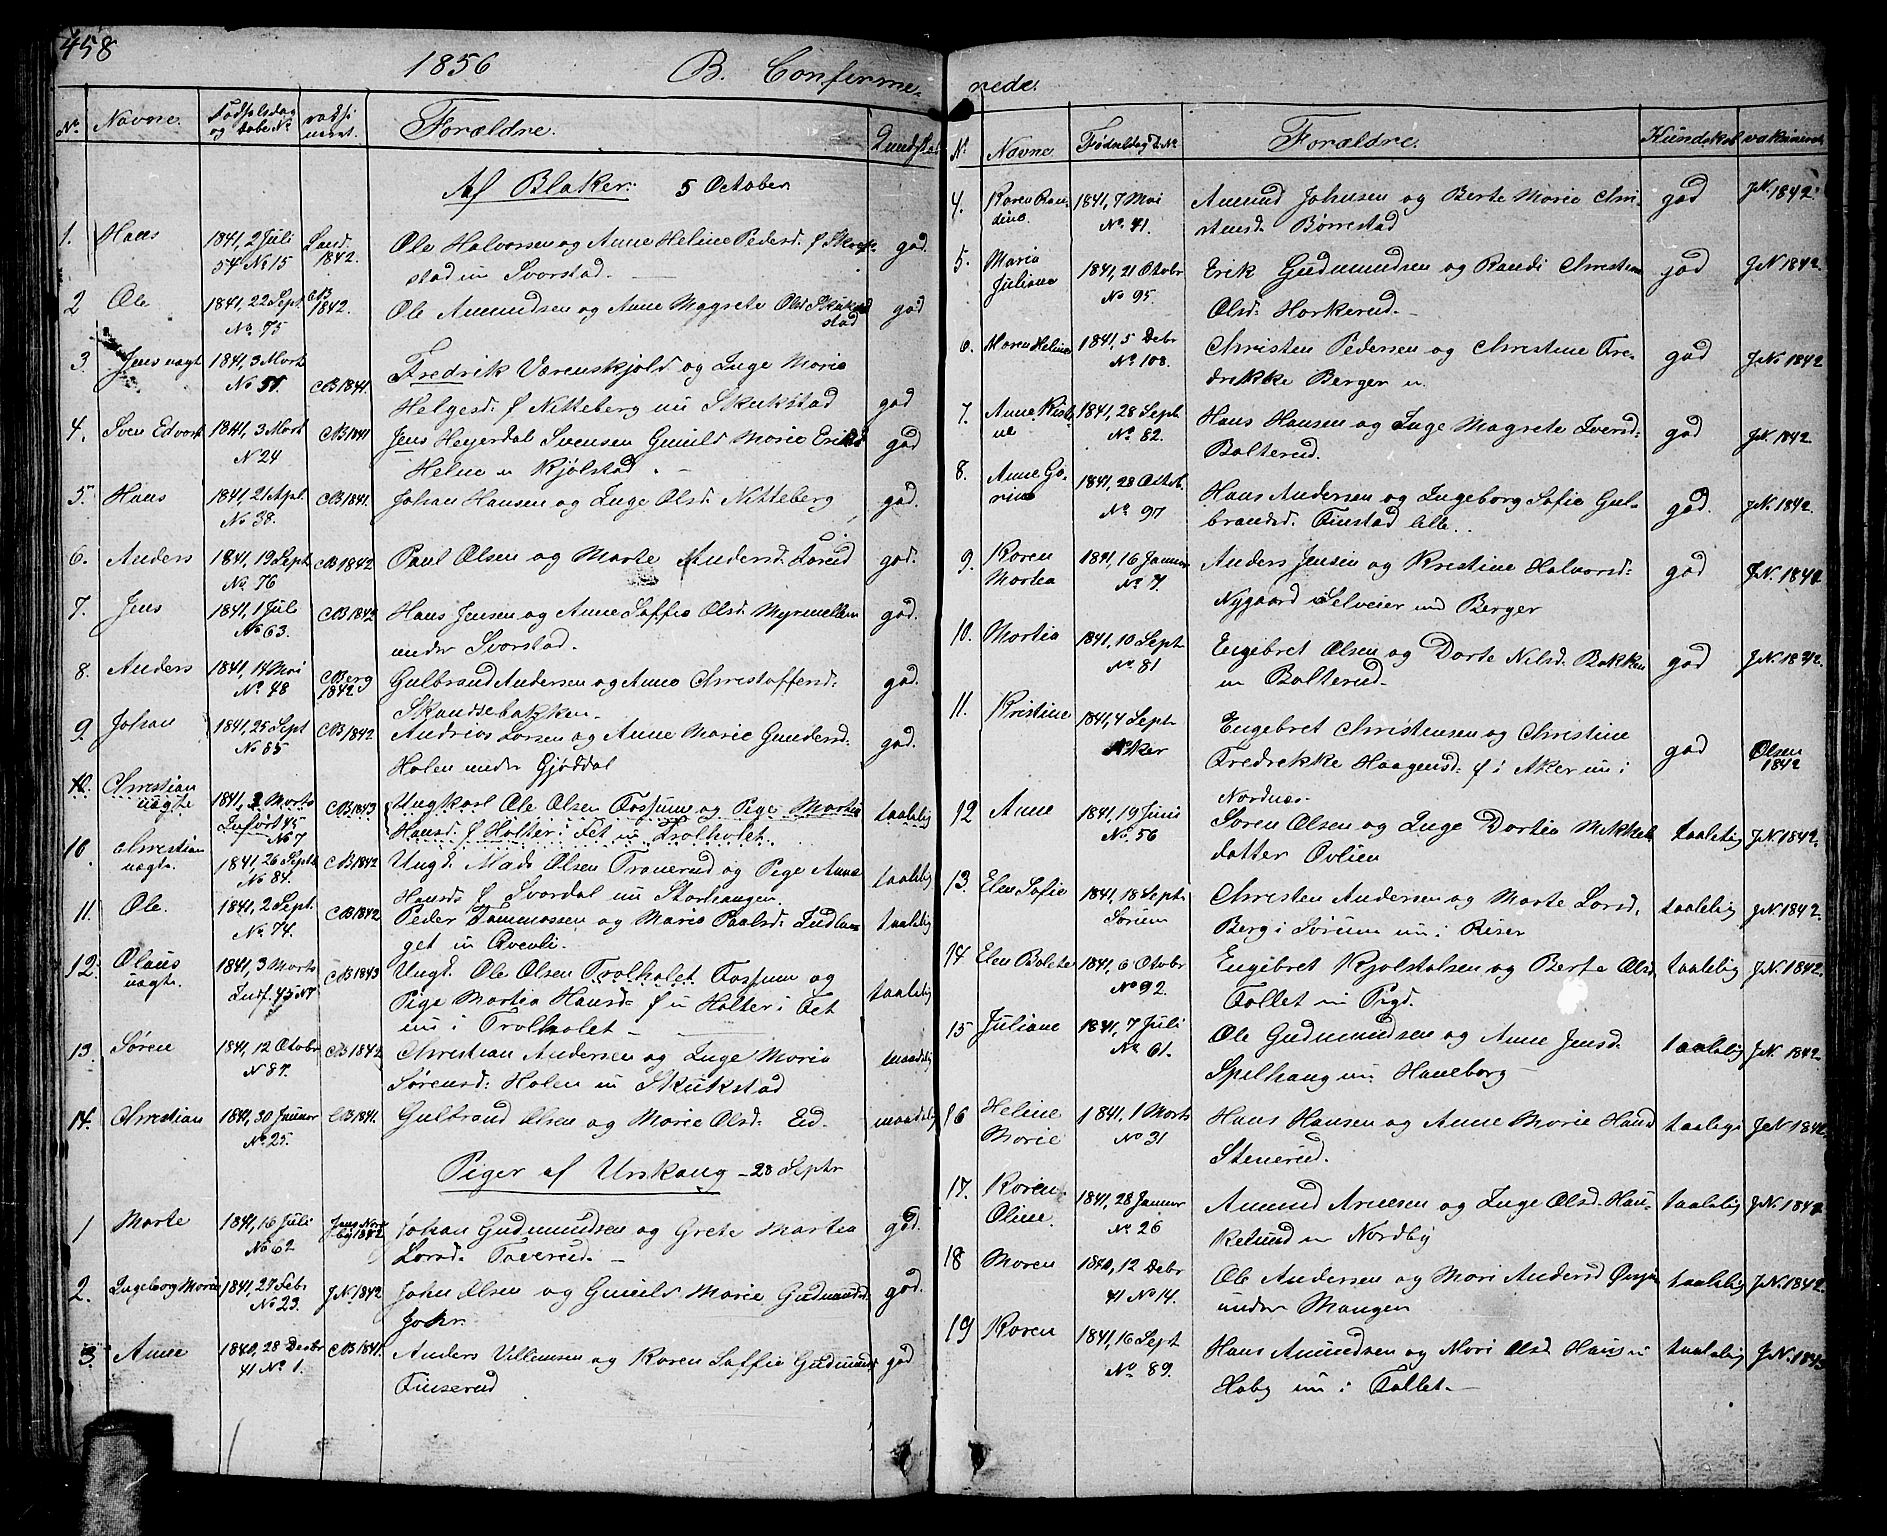 458
1856 B. Conferme-
No. Navne. Fødselsdag og Daabs No Forældre. Kundskab
Af Blaker: 5 October
1. Hans 1841, 2 Juli 54 No 15 Land. 1842. Ole Halvorsen og Anne Helene Pedersd. god.
stad un Svorstad.
2 Ole 1841, 22 Sept. No. 75 CB 1842. Ole Amundsen og Anne Magrete Olsd. Skukstad god
3. Jens uægt 1841, 3 Marts No 51. CB 1841 Fredrik Værenskjold og Inge Marie
Helgesd. f Nitteberg nu Skukstad god
4. Sven Edvart 1841, 3 Mart No 24 CB 1841 Jens Heyerdal Svensen Gunild Marie Eriksd god
Helne u Kjølstad.
5. Hans 1841, 21 Apl. No. 38. CB 1841. Johan Hansen og Inge Olsd. Nitteberg god.
6. Anders 1841, 19 Sept. No. 76 CB 1842 Paul Olsen og Marte Andersd. god.
7. Jens 1841, 1 Juli No 63. CB 1842 Hans Jensen og Anne Saffie Olsd. god.
under Svorstad.
8. Anders 1841, 14 Mai No. 48 CBerg 1842 Gulbrand Andersen og Anne Christoffersd: god.
Skandsebakken.
9. Johan 1841, 25 Sept No 85 CB 1842 Andrias Larsen og Anne Marie Gundersd. god.
Holen under Gjøddal
10. Christian uægte 1841, 3 Marts Indført 45 No 7 CB 1843 Ungkarl Ole Olsen Fossum og Pige Martia taalelig
Hansd. f Holter i Fet u Trolholet.
10. Christian uægte. 1841 26 Sept. No 84. CB 1842 Ungk. Mads Olsen Tronerud og Pige Anne taalelig
Hansd f Svardal nu Storhaugen.
11. Ole. 1841, 2 Sept. No. 74. CB 1842 Peder Tommassen og Marie Paalsd. taalelig
get un Avenli.
12. Olaus uægte. 1841, 3 Marts Indf. 45 No 7 CB 1843 Ungk. Ole Olsen Trolholet Fossum og
Pige Martia Hansd. f u Holter i Fet taalelig
nu i Trolholet
13. Søren 1841, 12 Octobr No 87. CB 1842 Christian Andersen og Inge Maria maadelig
Sørensd. Holen un Skukstad
14. Christian 1841, 30 Januar No. 25. CB 1841. Gulbrand Olsen og Marie Olsd. Eid. maadelig
Piger af Urskoug 28 Septr
1 Marte 1841, 16 Juli No 62 1842 Johan Gudmundsen og Grete Martea god.
Larsd. Toverud.
2. Ingeborg Marie 1841, 27 Febr No 23. J.N. 1842 John Olsen og Gunild Marie Gudmundsd. god.
3. Anne 1840, 28 Decbr 41 No 1. CB 1841. Anders Villemsen og Karen Saffie Gudmunds god
Finserud
rede.
N. Navne Fødselsdag D. No Forældre. Kundskab vaksineret
4. Karen Randine 1841, 7 Mai No. 41. Amund Johnsen og Berte Marie Chri- god J.N. 1842.
stensd. Børrestad
5. Maria Juliane 1841, 21 Octobr No 95. Erik Gudmundsen og Randi Christine god J.N. 1842
Olsd. Horkerud.
6. Maren Helene 1841, 5 Debr No. 108. Christen Pedersen og Christine Fre- god J.N. 1842
drekke Berger u.
7. Anne Kistine 1841, 28 Sept. No. 82. Hans Hansen og Inge Magrete Iversd: god J.N. 1842.
Bolterud.
8. Anne Gorine 1841, 28 Octob. No 97 Hans Andersen og Ingeborg Sofie Gul-
brandsd. Finstad lille. god. J.N. 1842.
9. Karen Martea 1841, 16 Januar No 7. Anders Jensen og Kristine Halvorsd. god J.N. 1842
Nygaard Selveier und Berger
10. Martia 1841, 10 Sept No 81 Engebret Olsen og Dorte Nilsd. Bakken god J.N. 1842.
un Bolterud.
11. Kristine 1841, 4 Sept Aker Engebret Christensen og Christine
Fredrekke Haagensd. f i Aker nu i god Olsen 1842
Nordnæs.
12 Anne 1841, 19 Juni No. 56 Søren Olsen og Inge Dortea Mikkels taalelig J.N. 1842.
datter Ovlien
13. Elen Sofie 1841, 18 Sept. Sørum Christen Andersen og Marte Larsd. taalelig J.N. 1842.
Berg i Sørum nu i Riser
14 Elen Bolette 1841, 6 Octobr No 92. Engebret Kjølstadsen og Berte Olsd. taalelig J.N. 1842.
Follet un
15 Juliane 1841, 7 Juli No 61. Ole Gudmundsen og Anne Jensd. taalelig J.N. 1842.
Spelhaug un: Haneborg
16 Heline Marie 1841, 1 Marts No 31 Hans Hansen og Anne Marie Hansd taalige J.N. 1842.
Stenerud.
17. Karen Oline. 1841, 28 Januar No. 26 Amund Arnesen og Inge Olsd. Hau- taalelig J.N. 1842
kelund un Nordby
18 Maren 1840, 12 Debr 41 No 14. Ole Andersen og Mari Andersd taalelig J.N. 1842.
under Mangen
19 Karen 1841, 16 Sept No. 89. Hans Amundsen og Mari Olsd. taalelig J.N. 1843
Haby nu i Follet.